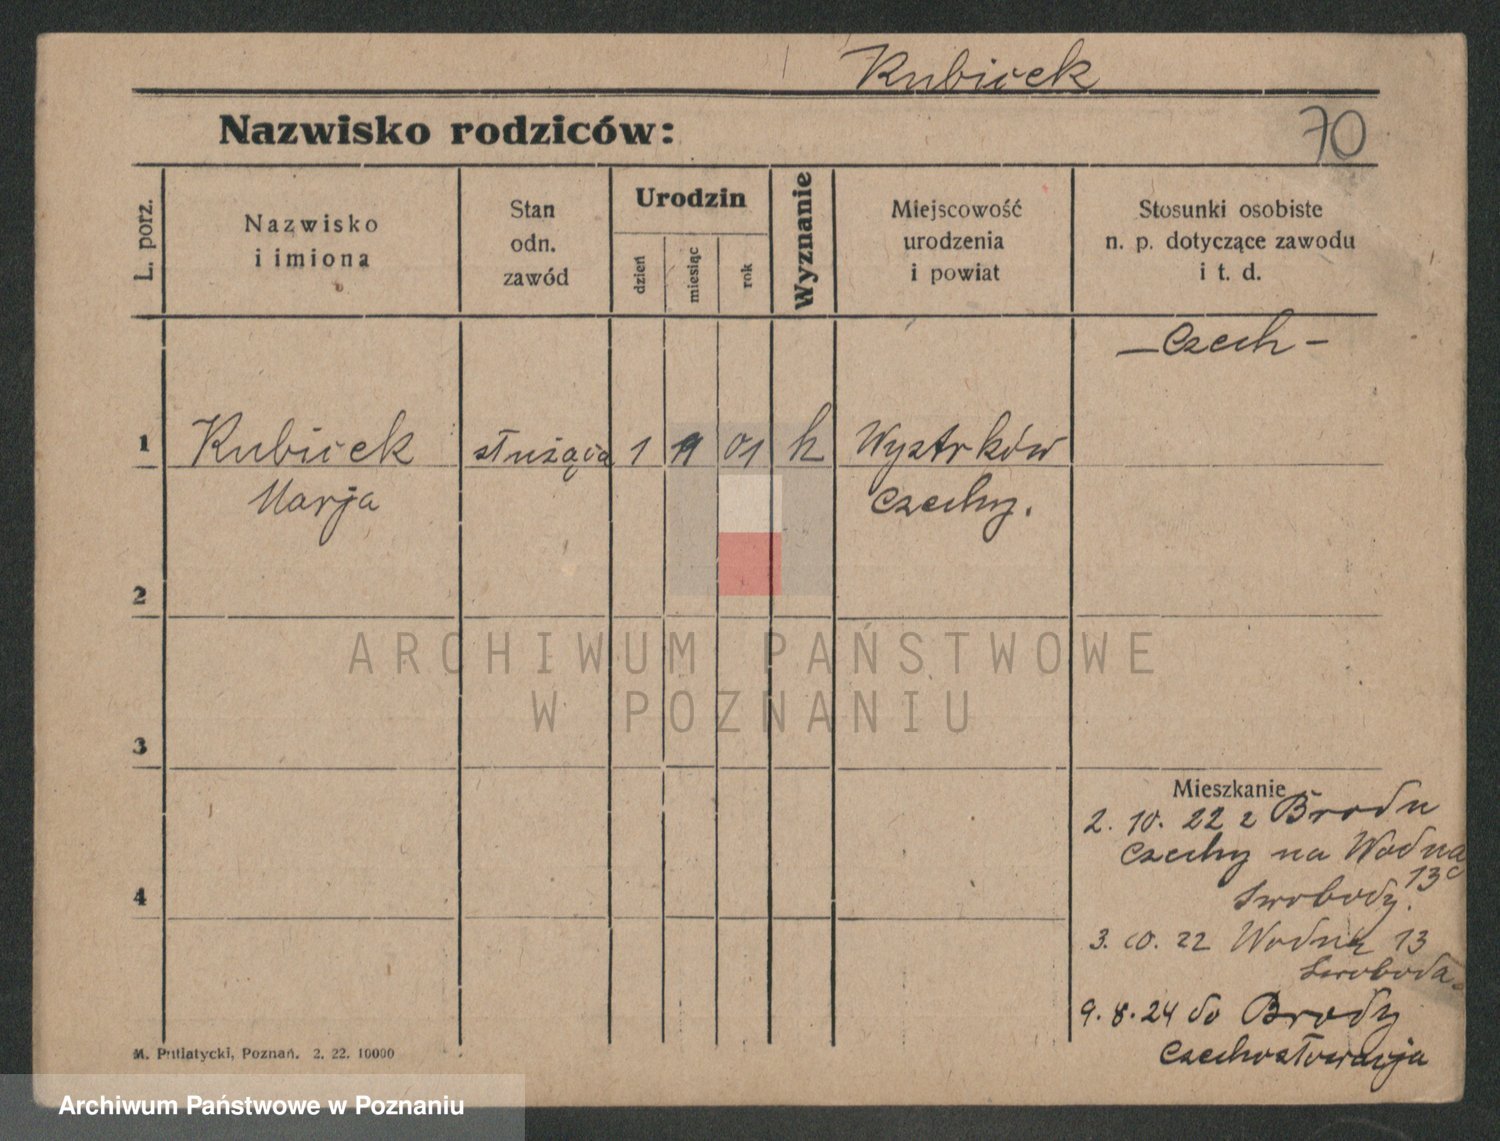 Kubiček
Nazwisko rodziców:
70
L. porz.
Nazwisko
i imiona
Stan
odn.
zawód
Urodzin
dzień
miesiąc
rok
Wyznanie
Miejscowość
urodzenia
i powiat
Stosunki osobiste
n. p. dotyczące zawodu
i t. d.
– Czech –
1 Kubiček służąca 1 01 k Wystrków
Marja Czechy.
2
3
4
Mieszkanie
2. 10. 22 z Brodu
Czechy na Wodna
13
Swobody.
3. 10. 22 Wodna 13
Swoboda
9. 8. 24 do Brody
Czechosłowacja
M. Putiatycki, Poznań. 2. 22. 10000
ARCHIWUM PAŃSTWOWE
W POZNANIU
Archiwum Państwowe w Poznaniu